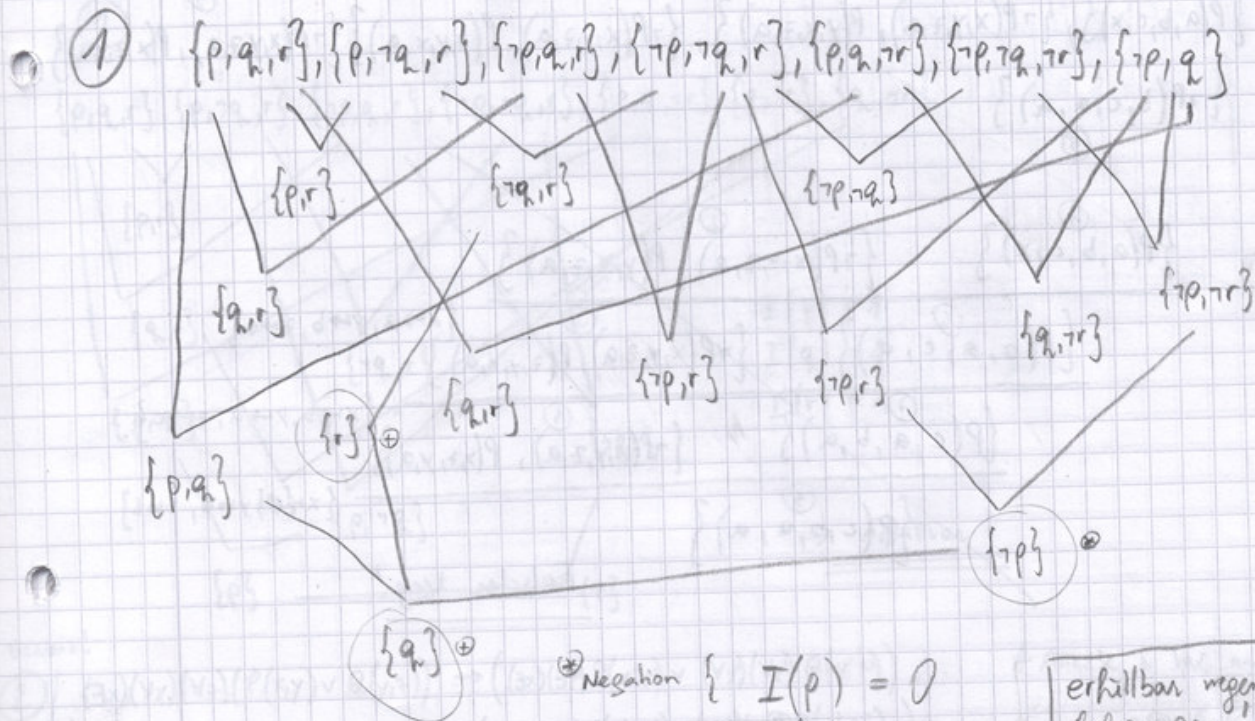 ① {p,q,r}, {p,¬q,r}, {¬p,q,r}, {¬p,¬q,r}, {p,q,¬r}, {¬p,¬q,¬r}, {¬p,q}
{p,r} {¬q,r} {¬p,¬q}
{q,r} {¬p,¬r}
{q,¬r}
{q,r} {¬p,r} {¬p,r}
{r} ⊕
{p,q}
{¬p} ⊛
{q} ⊕
⊛ Negation { I(p) = 0
erfüllbar wegen